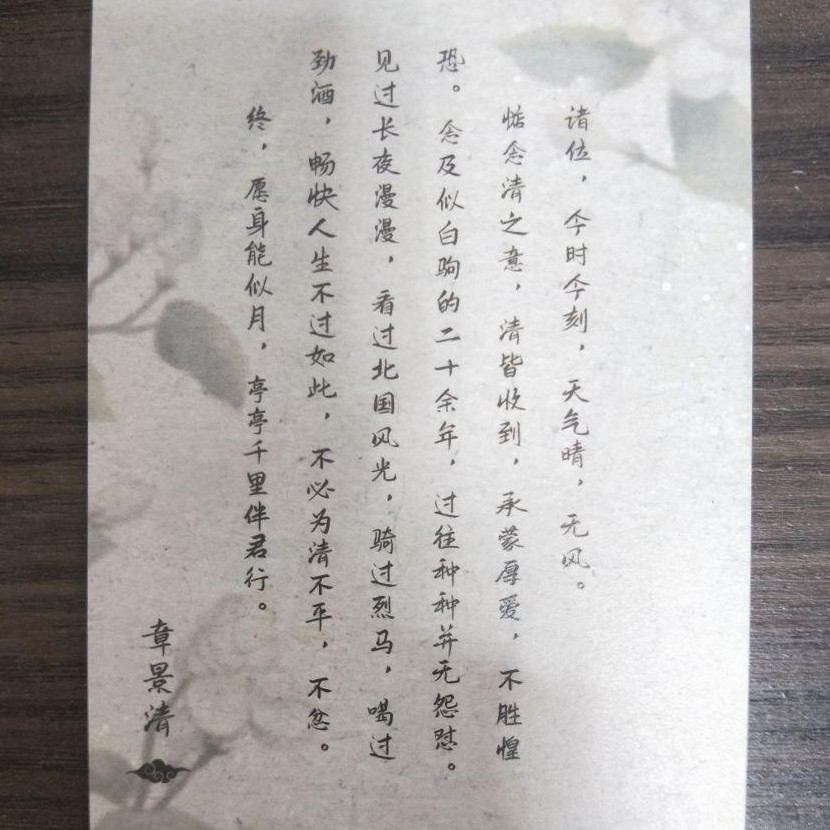 诸位，今时今刻，天气晴，无风。
惦念清之意，清皆收到，承蒙厚爱，不胜惶
恐。念及似白驹的二十余年，过往种种并无怨怼。
见过长夜漫漫，看过北国风光，骑过烈马，喝过
劲酒，畅快人生不过如此，不必为清不平，不忿。
终，愿身能似月，亭亭千里伴君行。
章景清